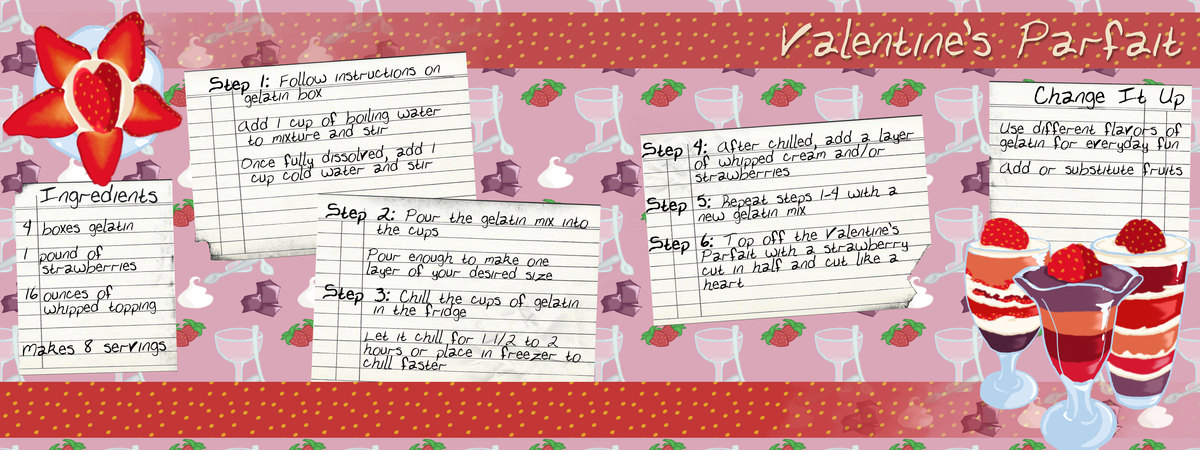 Valentine's Parfait
Ingredients
4 boxes gelatin
1 pound of
strawberries
16 ounces of
whipped topping
makes 8 servings
Step 1: Follow instructions on
gelatin box
Add 1 cup of boiling water
to mixture and stir
Once fully dissolved, add 1
cup cold water and stir
Step 2: Pour the gelatin mix into
the cups
Pour enough to make one
layer of your desired size
Step 3: Chill the cups of gelatin
in the fridge
Let it chill for 1 1/2 to 2
hours or place in freezer to
chill faster
Step 4: After chilled, add a layer
of whipped cream and/or
strawberries
Step 5: Repeat steps 1-4 with a
new gelatin mix
Step 6: Top off the Valentine's
Parfait with a strawberry
cut in half and cut like a
heart
Change It Up
Use different flavors of
gelatin for everyday fun
Add or substitute fruits